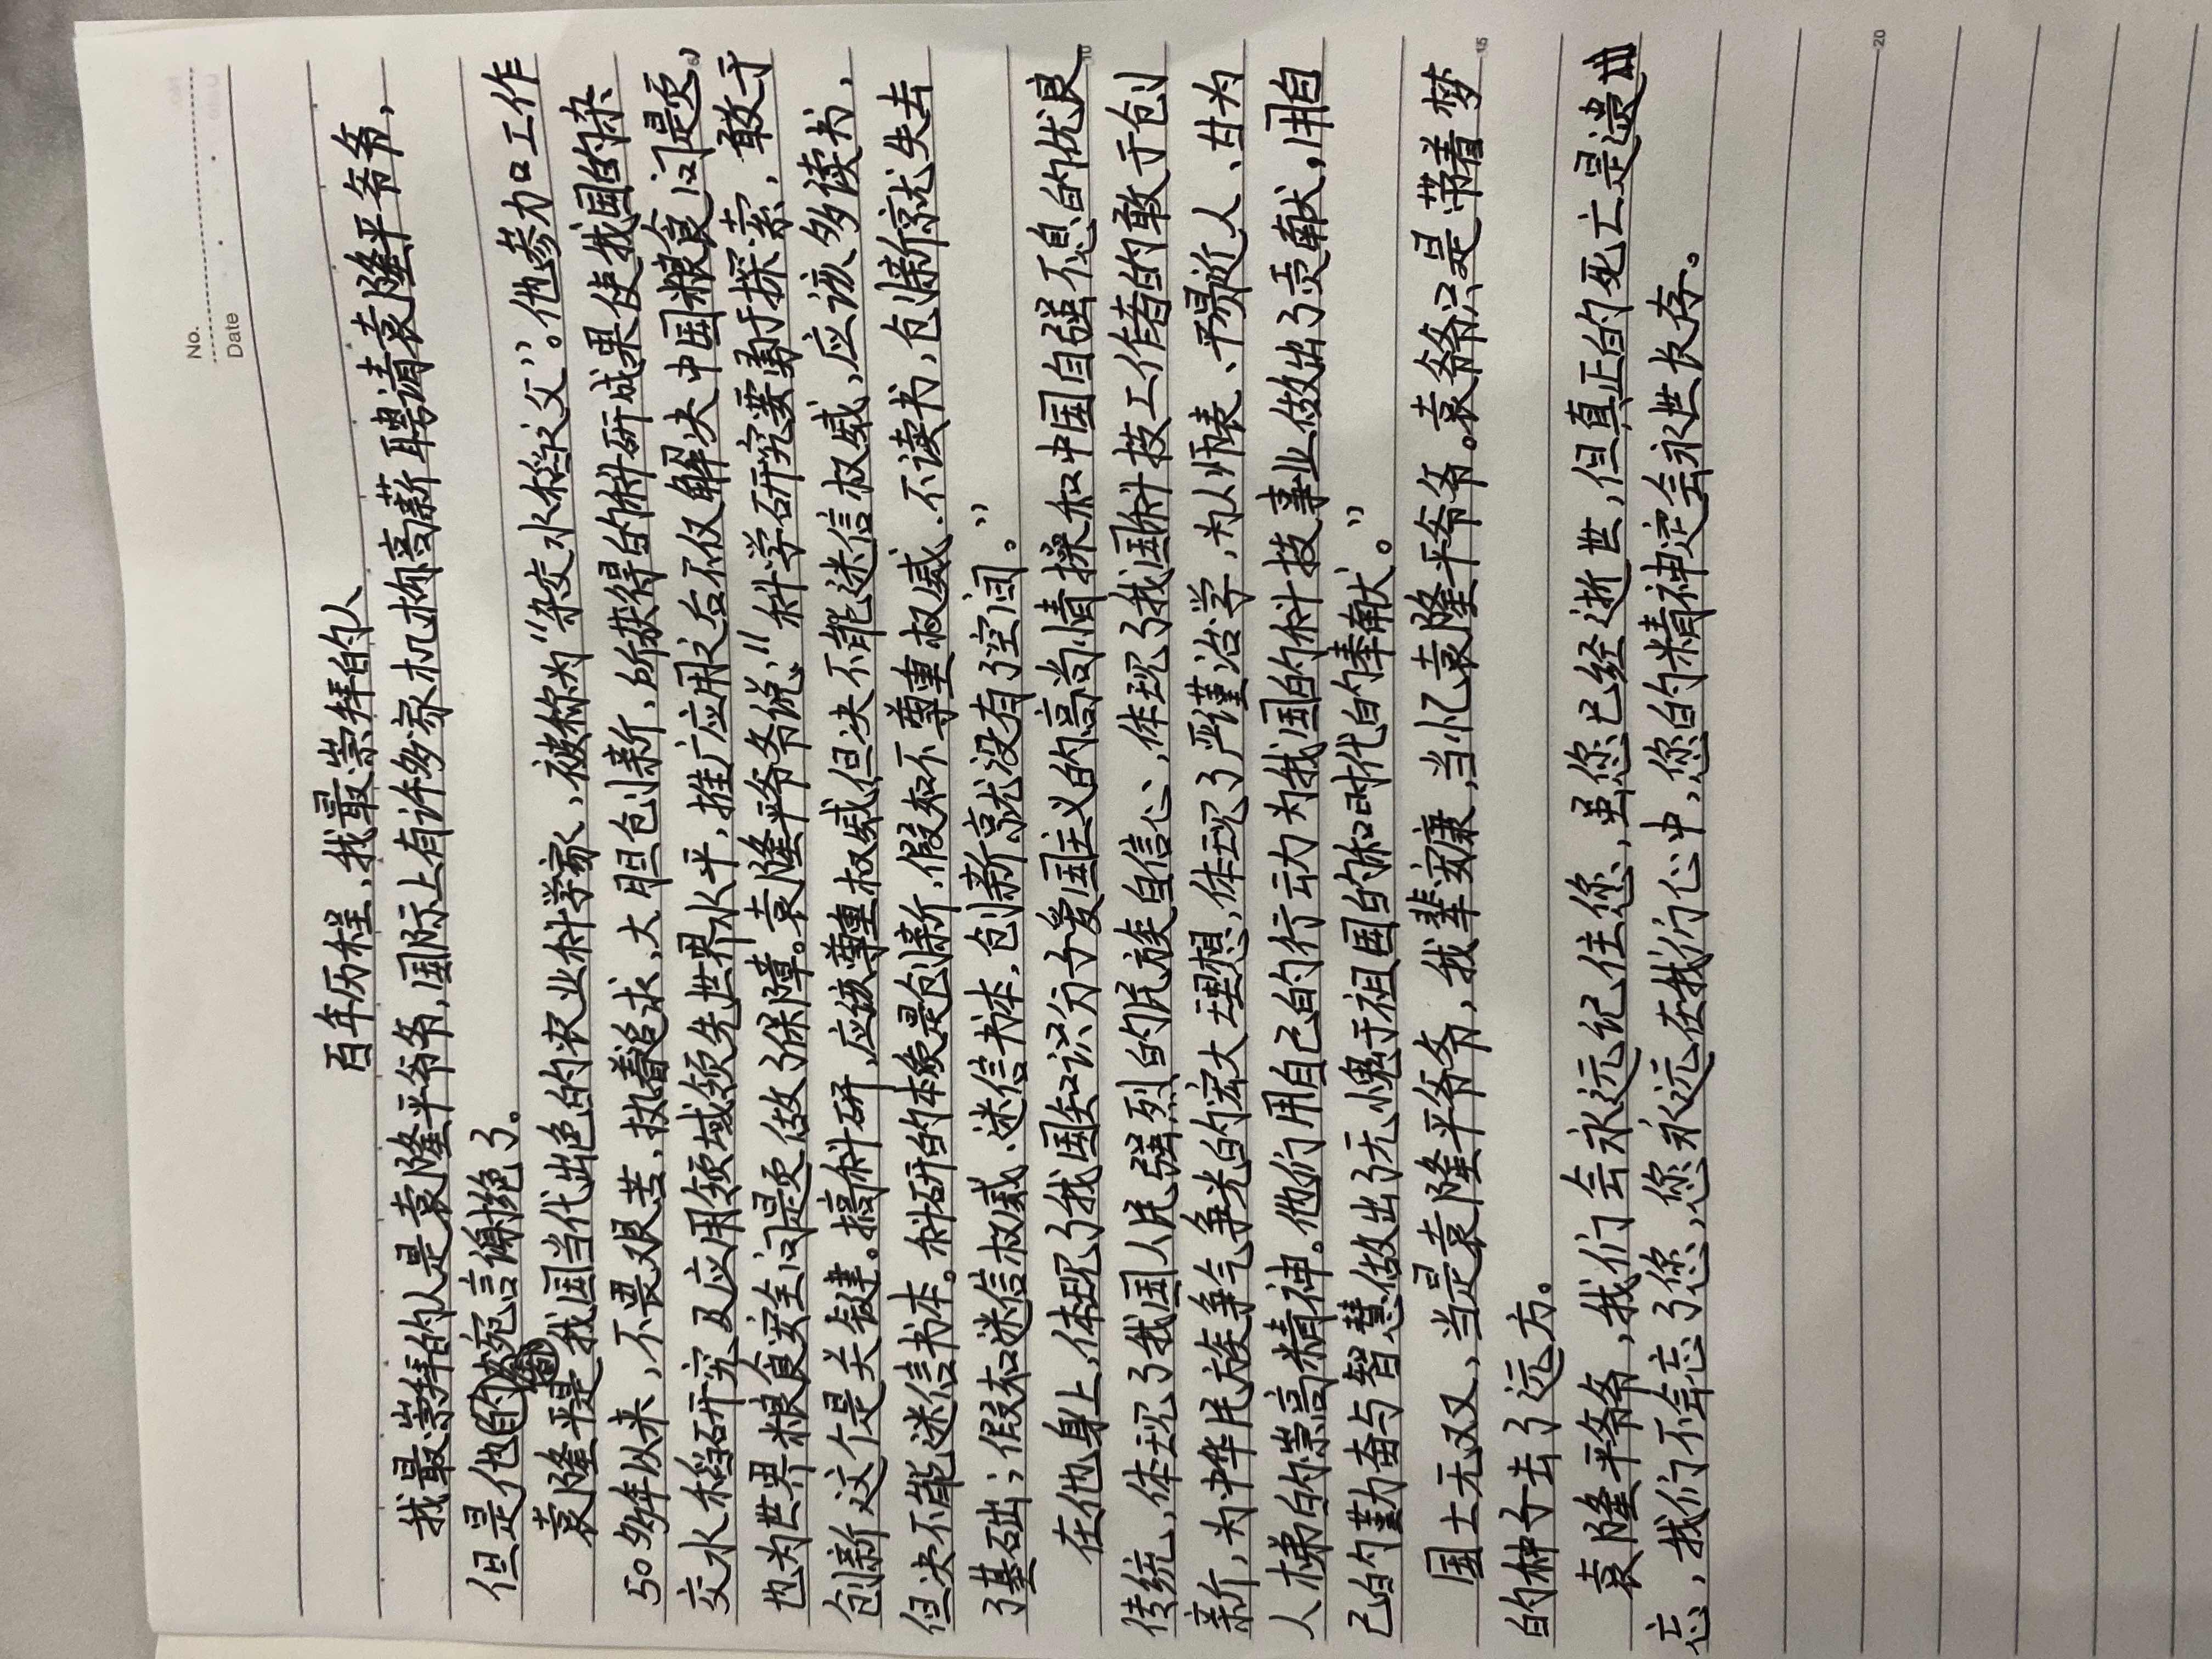 No.
Date
百年历程,我最崇拜的人
我最崇拜的人是袁隆平爷爷,国际上有许多家机构高薪聘请袁隆平爷爷,
但是他的婉言谢绝了。
袁隆平是我国当代出色的农业科学家,被称为“杂交水稻之父”。他参加工作
50多年以来,不畏艰苦,执着追求,大胆创新,所获得的科研成果使我国的杂
交水稻研究及应用领域领先世界水平,推广应用之后不仅解决中国粮食问题,
也为世界粮食安全问题做了保障。袁隆平爷爷说:“科学研究要勇于探索,敢于
创新这个是关键。搞科研,应该尊重权威但决不能迷信权威,应该多读书,
但决不能迷信书本。科研的本质是创新,假如不尊重权威、不读书,创新就失去
了基础;假如迷信权威、迷信书本,创新就没有了空间。”
在他身上,体现了我国知识分子爱国主义的高尚情操和中国自强不息的优良
传统,体现了我国人民强烈的民族自信心,体现了我国科技工作者的敢于创
新,为中华民族争气争光的宏大理想,体现了严谨治学,为人师表、平易近人、甘为
人梯的崇高精神。他们用自己的行动为我国的科技事业做出了贡献,用自
己的勤奋与智慧做出了无愧于祖国的和时代的奉献。”
国士无双,当是袁隆平爷爷,我辈安廉,当忆袁隆平爷爷。袁爷爷只是带着梦
的种子去了远方。
袁隆平爷爷,我们会永远记住您,虽您已经逝世,但真正的死亡是遗
忘,我们不会忘了您,您永远在我们心中,您的精神定会永世长存。
5
10
15
20